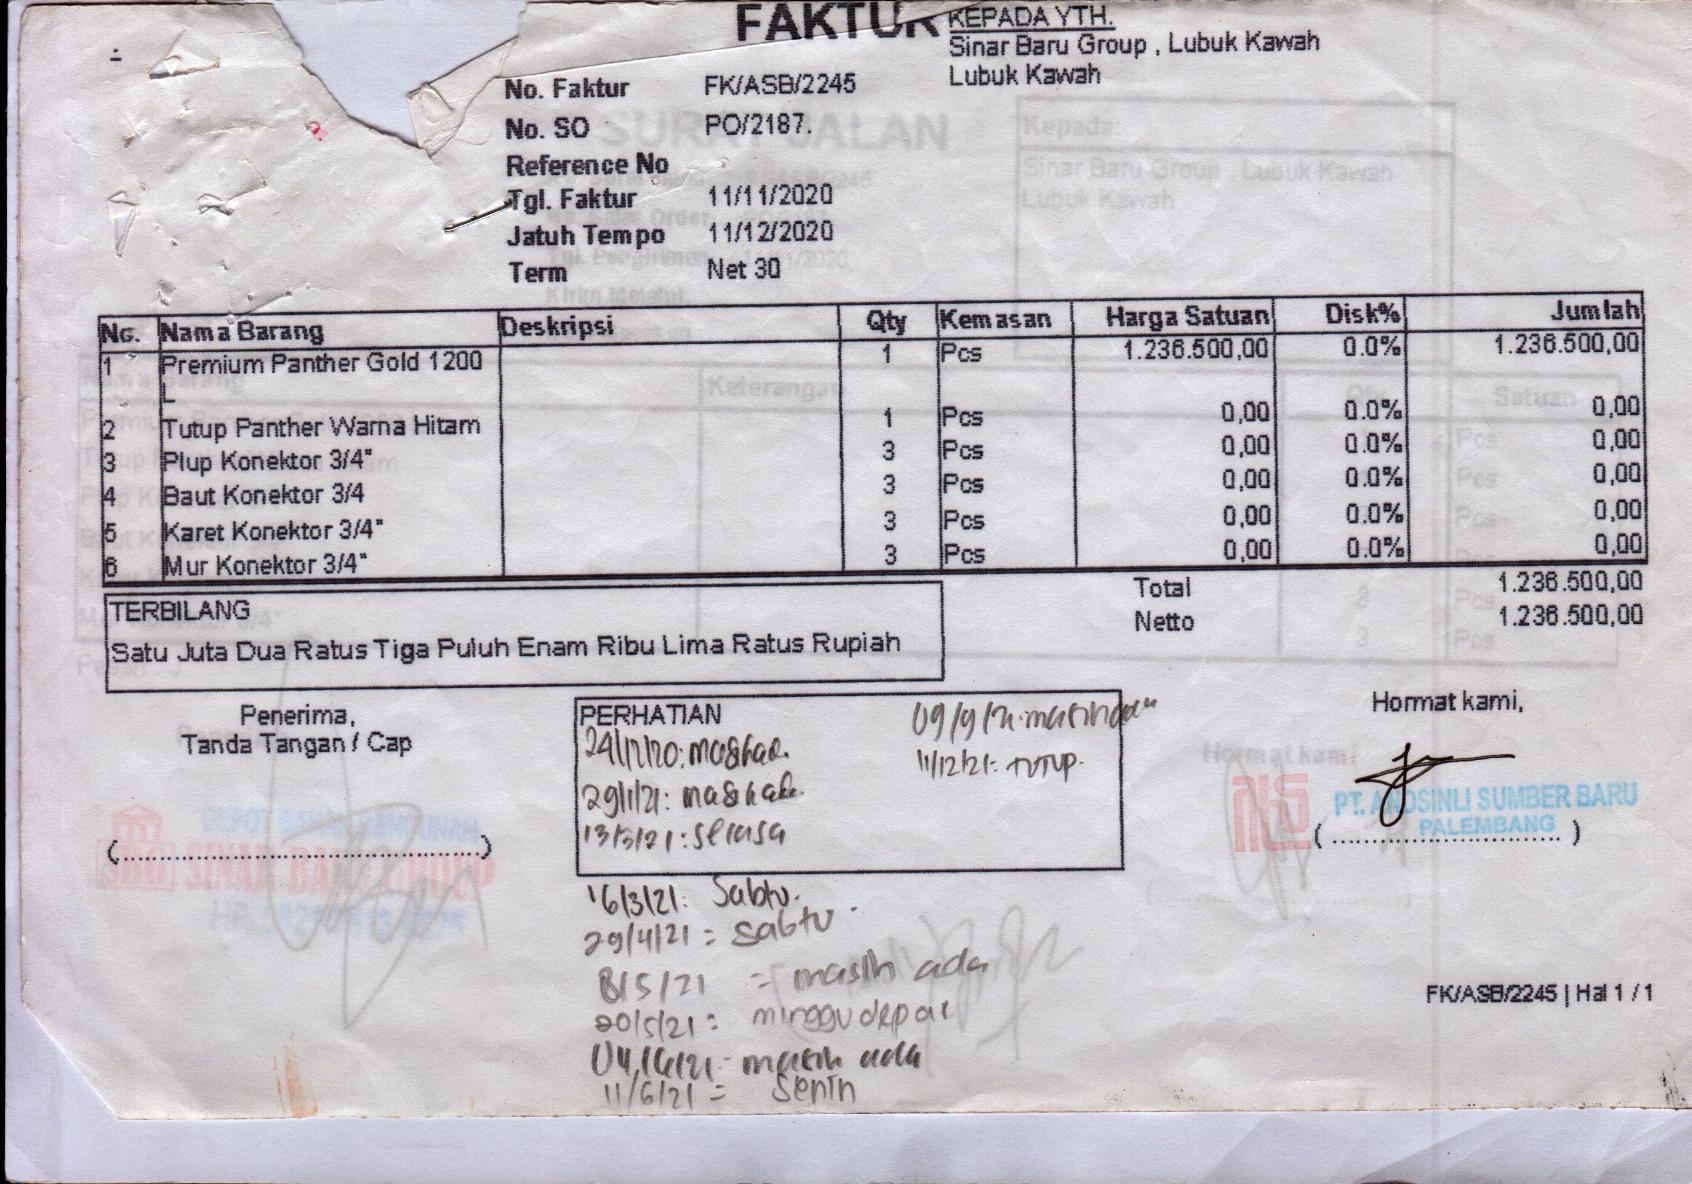 FAKTUR
KEPADA YTH.
Sinar Baru Group , Lubuk Kawah
Lubuk Kawah
No. Faktur FK/ASB/2245
No. SO PO/2187.
Reference No
Tgl. Faktur 11/11/2020
Jatuh Tempo 11/12/2020
Term Net 30
No. Nama Barang Deskripsi Qty Kemasan Harga Satuan Disk% Jumlah
1 Premium Panther Gold 1200 1 Pcs 1.236.500,00 0.0% 1.236.500,00
L
2 Tutup Panther Warna Hitam 1 Pcs 0,00 0.0% 0,00
3 Plup Konektor 3/4" 3 Pcs 0,00 0.0% 0,00
4 Baut Konektor 3/4 3 Pcs 0,00 0.0% 0,00
5 Karet Konektor 3/4" 3 Pcs 0,00 0.0% 0,00
6 Mur Konektor 3/4" 3 Pcs 0,00 0.0% 0,00
Total 1.236.500,00
Netto 1.236.500,00
TERBILANG
Satu Juta Dua Ratus Tiga Puluh Enam Ribu Lima Ratus Rupiah
Penerima,
Tanda Tangan / Cap
(........................................)
PERHATIAN
24/12/20:
29/1/21:
13/3/21: selasa
09/9/21:
11/12/21: TUTUP.
16/3/21: Sabtu.
29/4/21 = sabtu
8/5/21 = masih ada
20/5/21: minggu depan
masih ada
11/6/21 = Senin
Hormat kami,
PT. ANOSINLI SUMBER BARU
PALEMBANG
(........................................)
SURAT JALAN
Kepada:
Sinar Baru Group , Lubuk Kawah
Lubuk Kawah
Keterangan
Satuan
Hormat kami
DEPOT BAHAN BANGUNAN
SINAR BARU GROUP
FK/ASB/2245 | Hal 1 / 1